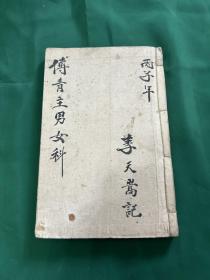 丙子年
李天嵩記
傅青主男女科